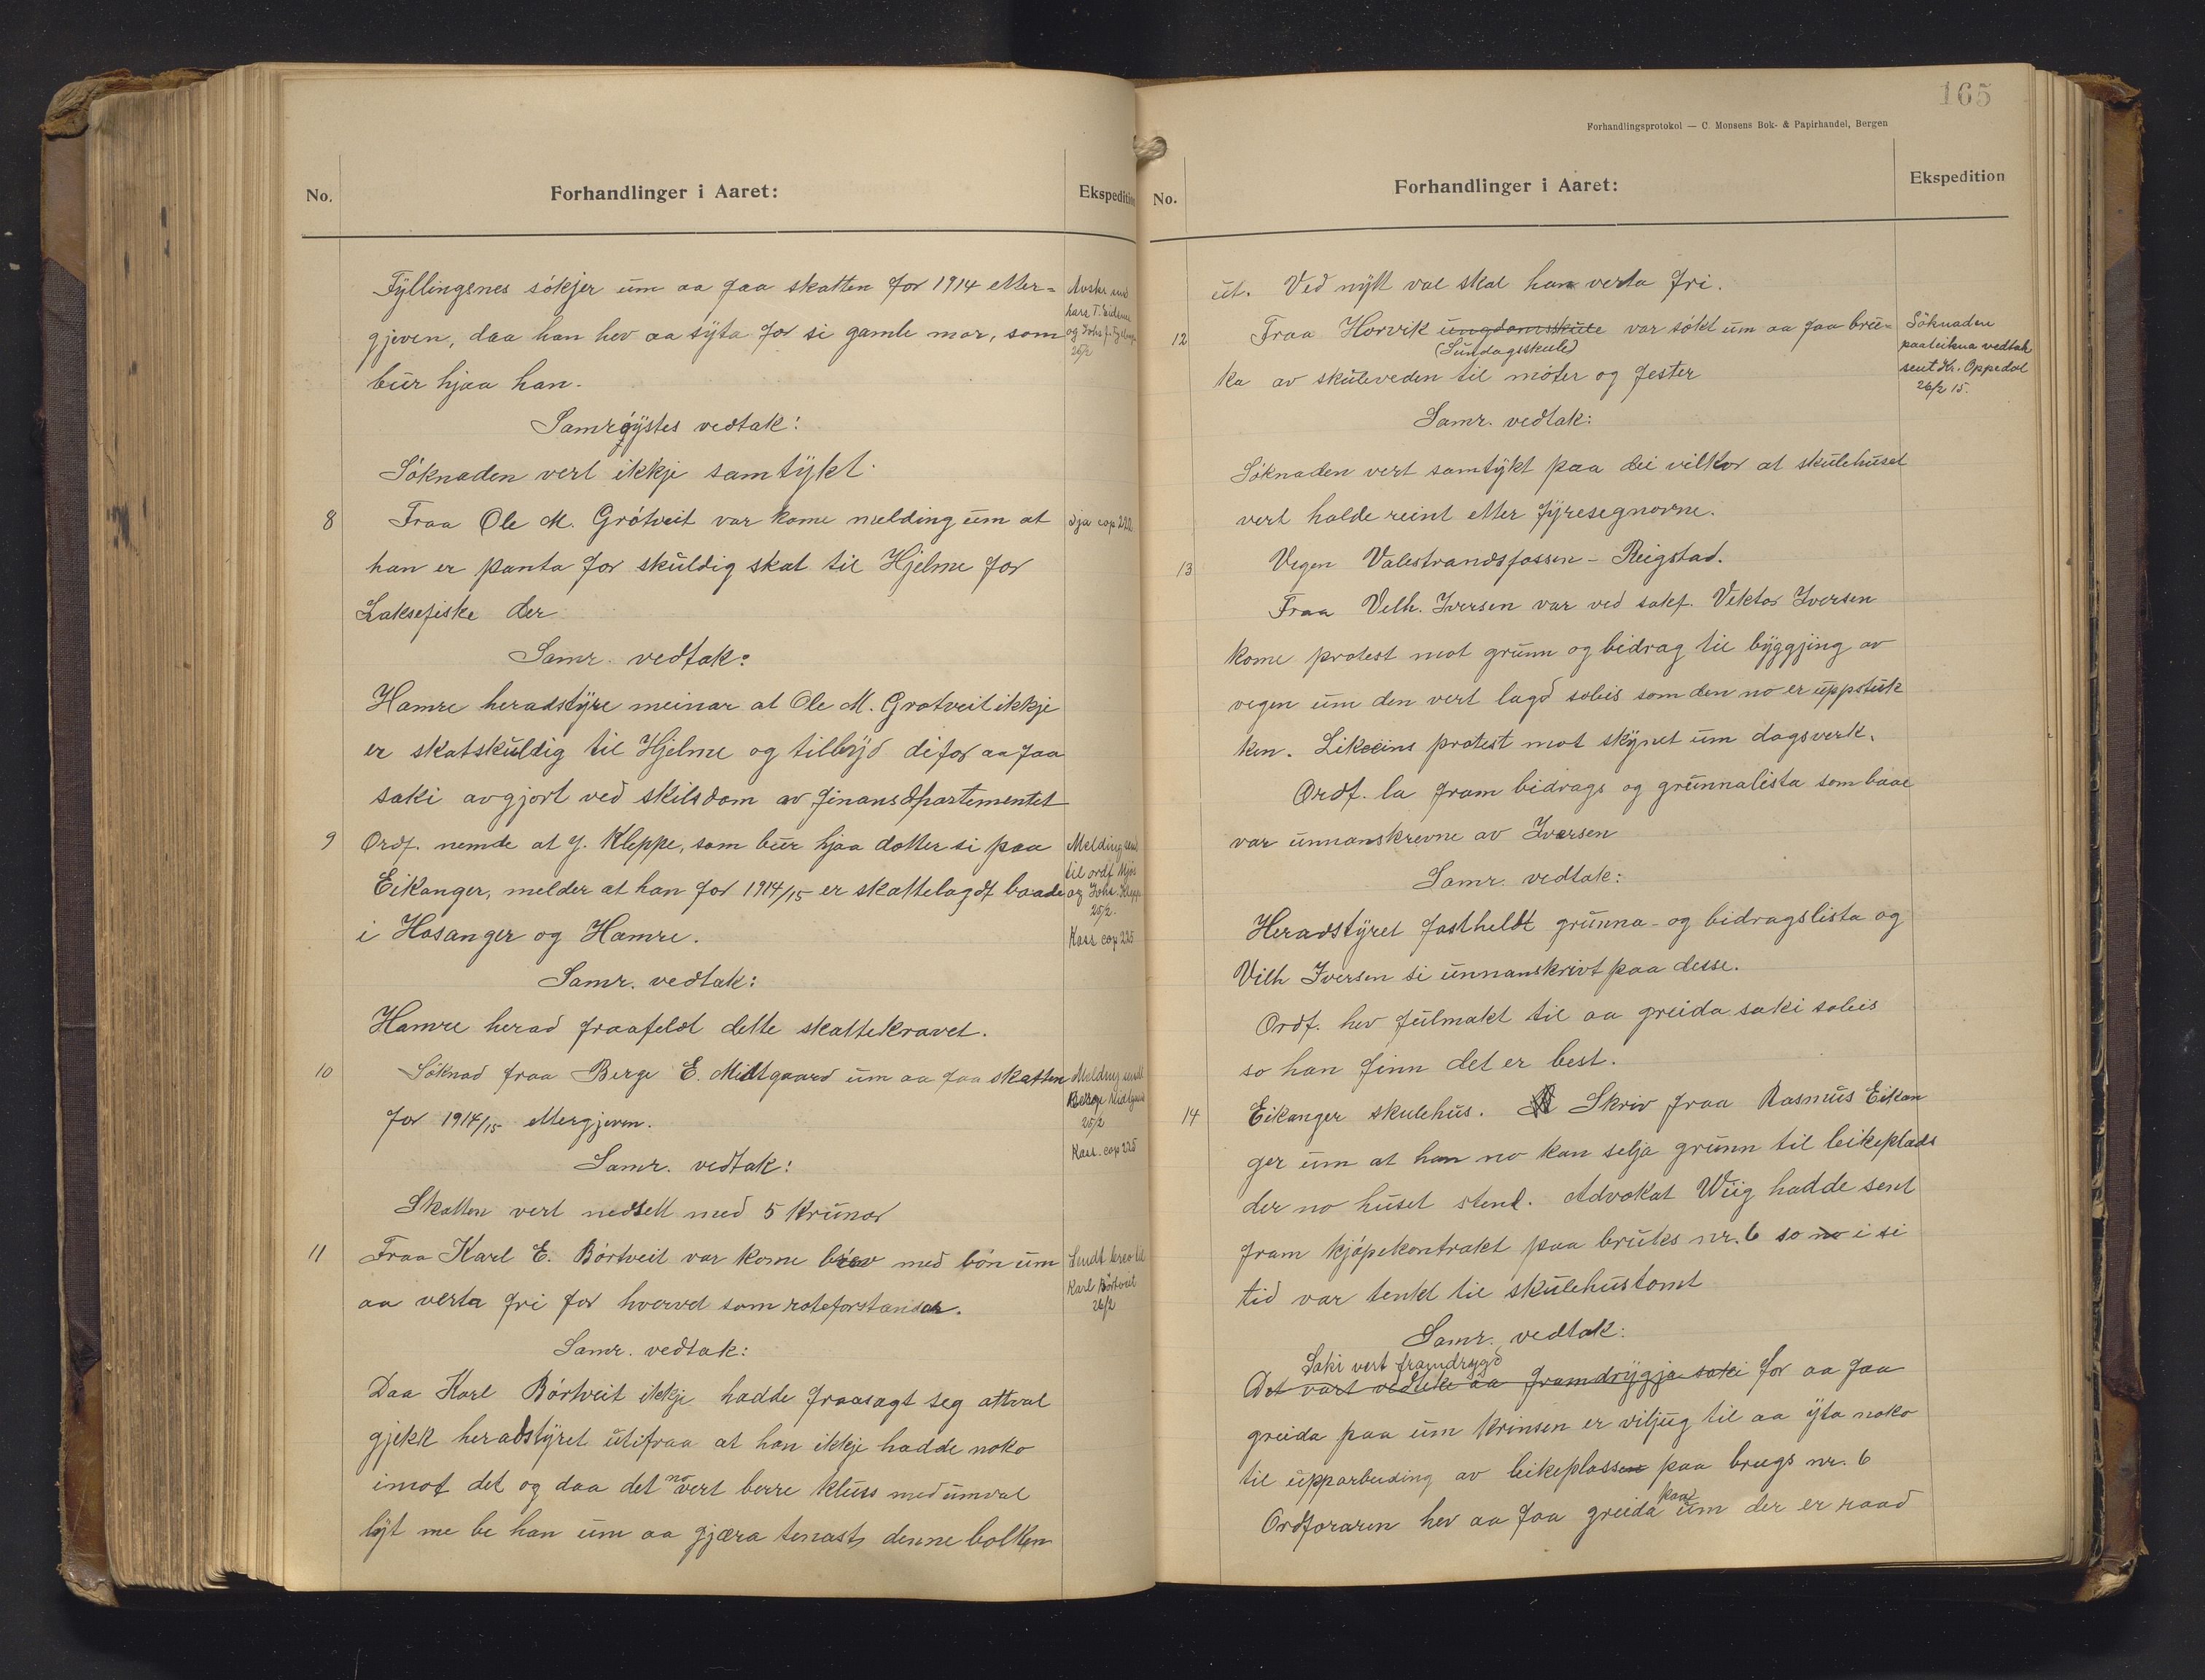 No.
Forhandlinger i Aaret:
Ekspedition
Fyllingsnes sökjer um aa faa skatten for 1914 etter=
gjeven, daa han hev aa syta for si gamle mor, som
bur hjaa han.
25/2
Samröystes vedtak:
Söknaden vert ikkje samtykt.
8 Fraa Ole M. Grötveit var kome melding um at
cop 222
han er panta for skuldig skat til Hjelme for
Laksefiske der
Samr. vedtak:
Hamre heradstyre meinar at Ole M. Grotveit ikkje
er skatskuldig til Hjelme og tilbyd difor aa faa
saki avgjort ved skilsdom av finansdpartementet
9 Ordf. nemde at J. Kleppe, som bur hjaa dotter si paa
Eikanger, melder at han for 1914/15 er skattelagdt baade
i Hosanger og Hamre.
Melding send
til ordf. Mjös
og Johs. Kleppe
25/2.
Kass cop 225
Samr. vedtak:
Hamre herad fraafeldt dette skattekravet.
10 Söknad fraa Berge E. Midtgaard um aa faa skatten
for 1914/15 ettergjeven.
Melding sendt
Berge Midtgaard
25/2
Kass. cop 225
Samr. vedtak:
Skatten vert nedsett med 5 Krunor
11 Fraa Karl E. Börtveit var kome brev med bön um
aa verta fri for hvervet som roteforstandar.
Sendt brev til
Karl Börtveit
26/2
Samr. vedtak:
Daa Karl Börtveit ikkje hadde fraasagt seg attval
gjekk heradstyret utifraa at han ikkje hadde noko
imot det og daa det no vert berre kluss med umval
lyt me be han um aa gjæra tenast denne bolken
165
Forhandlingsprotokol — C. Monsens Bok- & Papirhandel, Bergen
No.
Forhandlinger i Aaret:
Ekspedition
ut. Ved nytt val skal han verta fri.
12 Fraa Horvik ungdomsskule var sökt um aa faa bru=
(Sundagsskule)
ka av skuleveden til möter og fester
Söknaden
paateikna vedtak
sent Kr. Oppedal
26/2 15.
Samr. vedtak:
Söknaden vert samtykt paa dei vilkor at skulehuset
vert halde reint etter fyresegnorne.
13 Vegen Valestrandsfossen - Reigstad.
Fraa Vilh. Iversen var ved sakf. Viktor Iversen
kome protest mot grunn og bidrag til byggjing av
vegen um den vert lagd soleis som den no er uppstuk
ken. Likeeins protest mot skynet um dagsverk.
Ordf. la fram bidrags og grunnalista som baae
var unnanskrevne av Iversen
Samr. vedtak:
Heradstyret fastheldt grunna- og bidragslista og
Vilh Iversen si unnanskrivt paa desse.
Ordf. hev fulmakt til aa greida saki soleis
so han finn det er best.
14 Eikanger skulehus. Skriv fraa Rasmus Eikan
ger um at han no kan selja grunn til leikeplads
der no huset stend. Advokat Wiig hadde sent
fram kjöpekontrakt paa bruks nr. 6 so no i si
tid var tenkt til skulehustomt
Samr. vedtak:
Saki vert framdrygd
Det vart vedteke aa framdrygja saki for aa faa
greida paa um krinsen er viljug til aa yta noko
til upparbeiding av leikeplassen paa brugs nr. 6
Ordföraren hev aa faa greida paa um der er raad